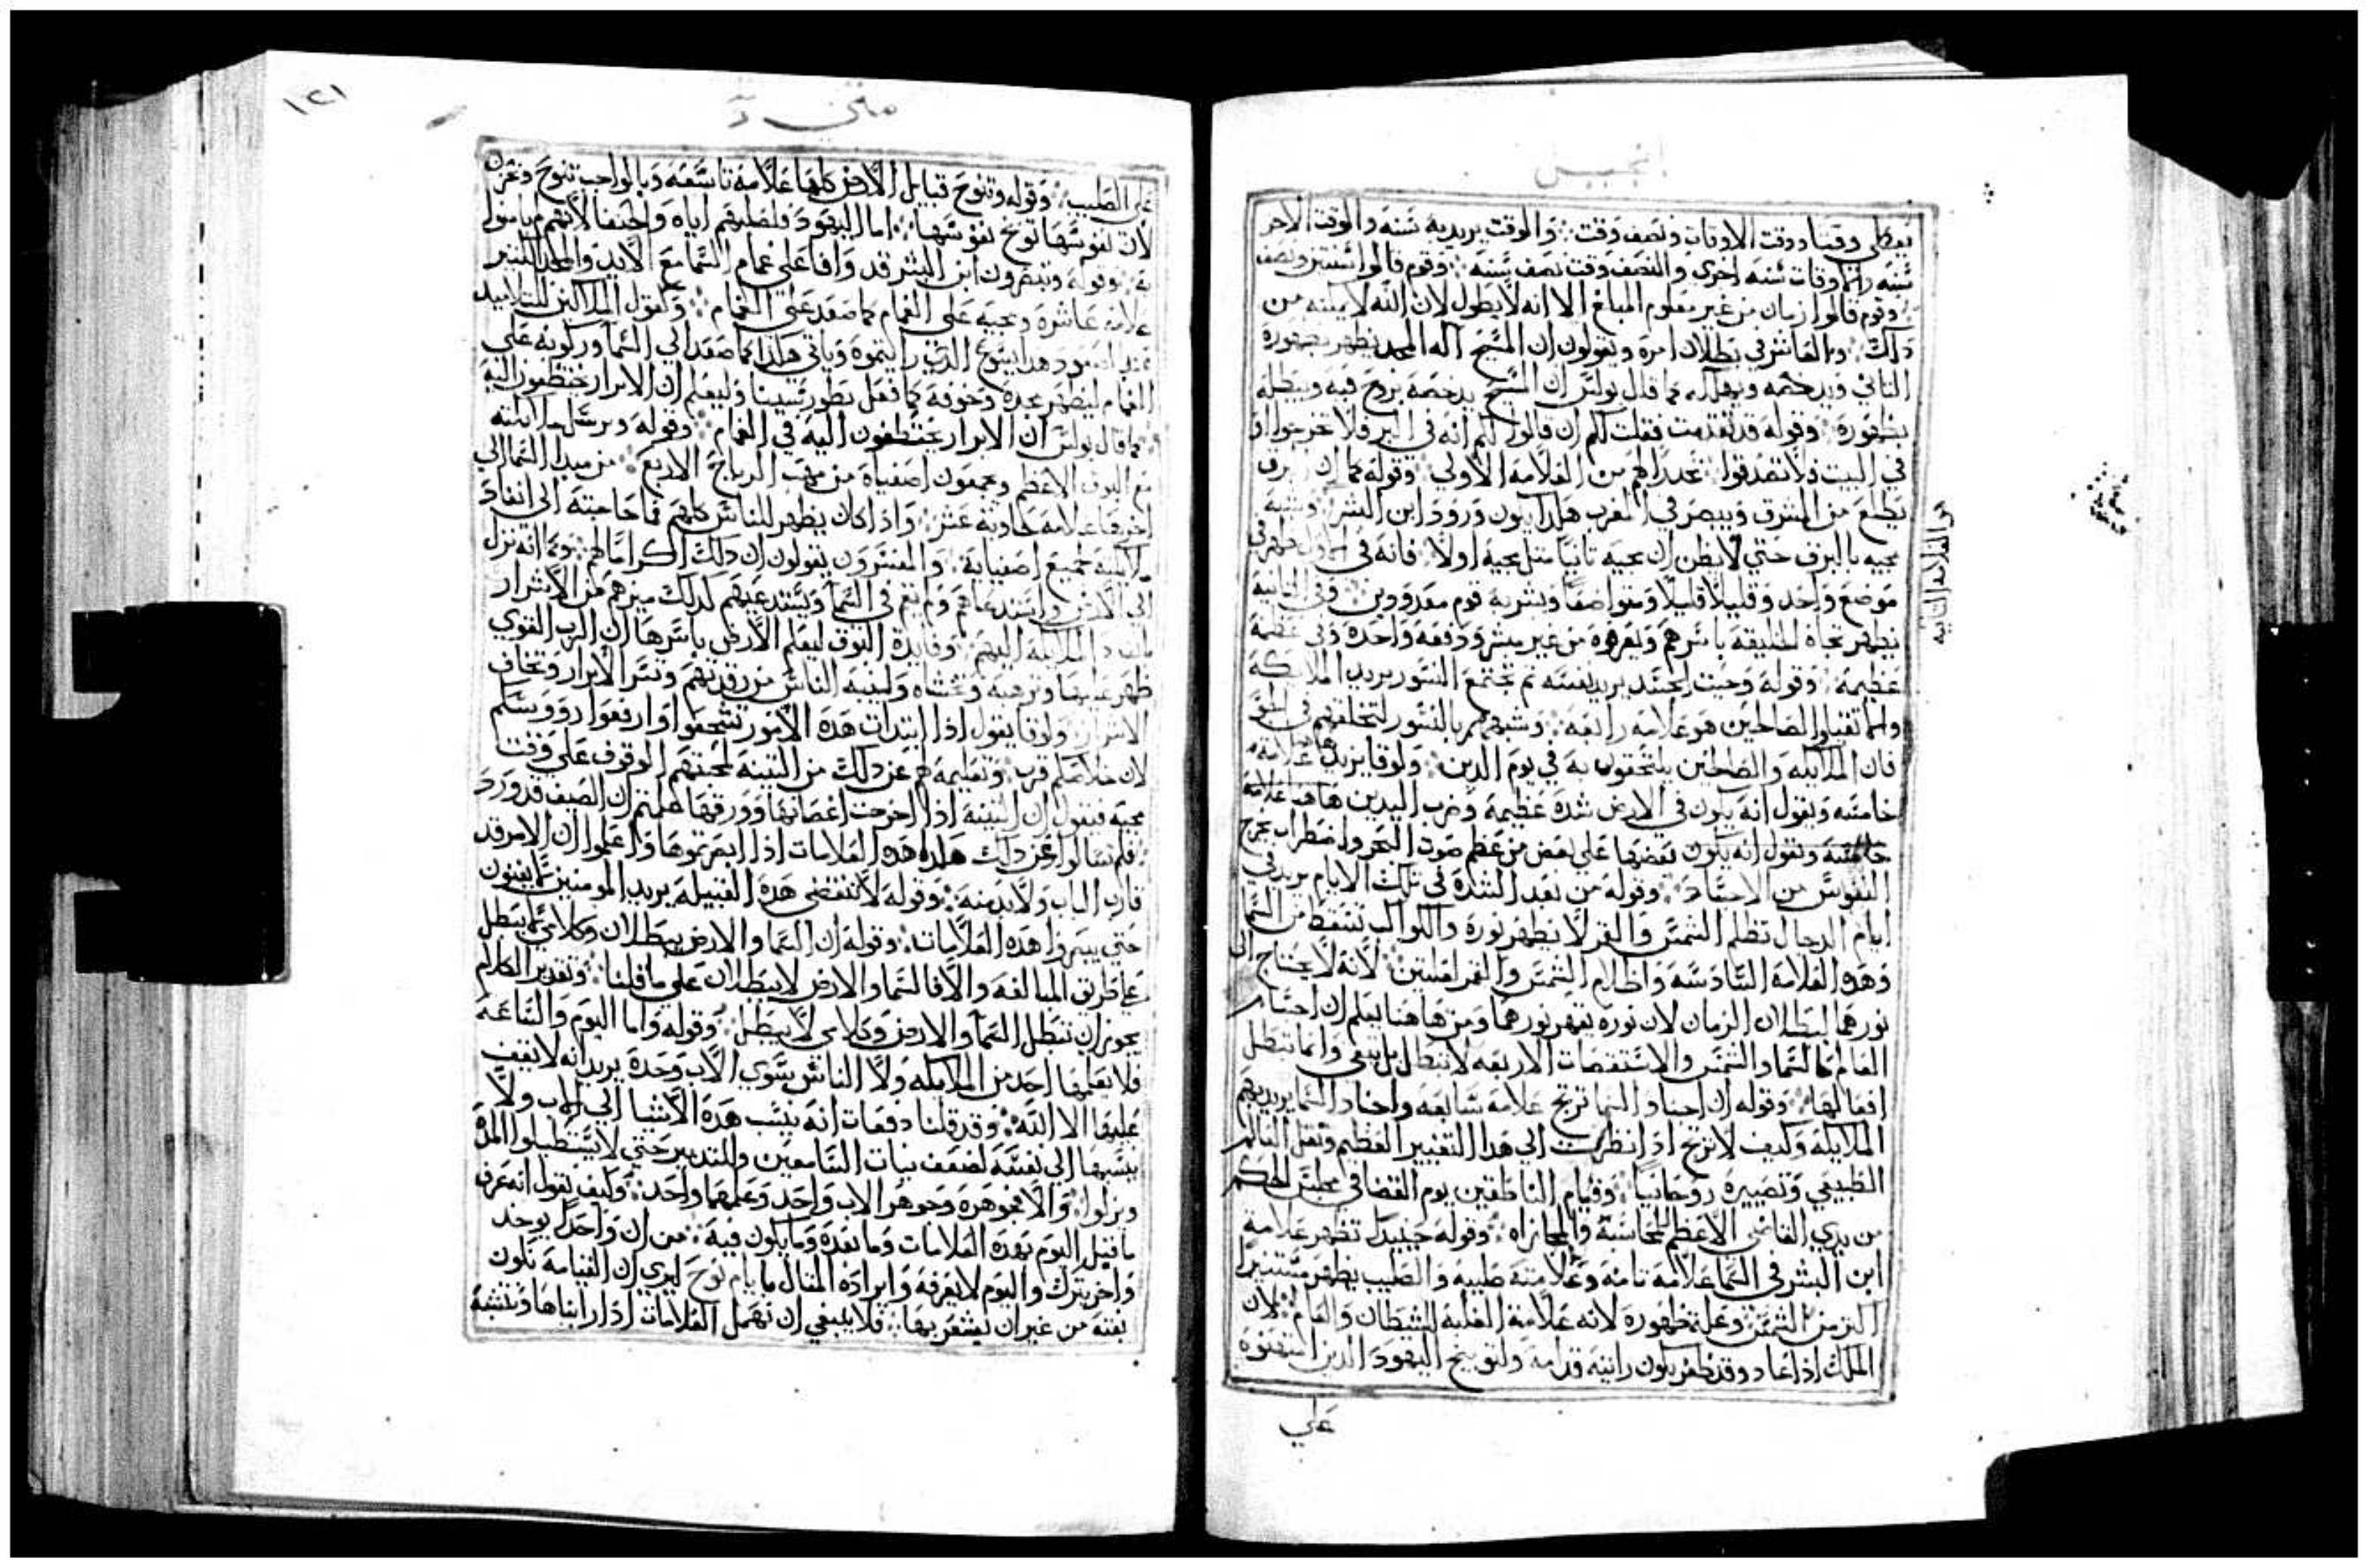 انجيل
يعطى وقتا ووقت الاوقات ونصف وقت والوقت يريد به سنه والوقت الاخر
سنه وانما وقات سنه اخرى والنصف وقت نصف سنه وقوم قالوا سنتين ونصف
وقوم قالوا زمان من غير معلوم المبلغ الا انه لا يطول لان الله لا يمكنه من
ذلك والعاشر في بطلان امره ويقولون ان المسيح اله المجد يظهر بظهوره
الثاني ويدحضه ويهلكه كما قال بولس ان المسيح يدحضه بروح فيه ويبطله
بظهوره وقوله قد تقدمت فقلت لكم ان قالوا لكم انه في البر فلا تخرجوا او
في البيت فلا تصدقوا تحذيرا لهم من العلامه الاولى وقوله كما ان البرق
يطلع من المشرق ويبصر في المغرب هكذا يكون ورود ابن البشر وشبه
مجيه بالبرق حتي لا يظن ان مجيه ثانيا مثل مجيه اولا فانه في الاول ظهر في
موضع واحد وقليلا قليلا ومتواضعا وبشر به قوم معدودين وفي الثانيه
يظهر تجاه الخليقه باسرهم ويعرفوه من غير مبشر ودفعه واحده وفي عظمة
عظيمه وقوله وحيث الجسد يريد نفسه ثم تجتمع النسور يريد الملايكه
والمتقبلوا الصالحين هو علامه رابعه وشبههم بالنسور لتحلقهم في الجو
فان الملايكه والصالحين يلتحقون به في يوم الدين ولوقا يزيد هاهنا علامة
خامسه ويقول انه يكون في الارض شدة عظيمة وضرب اليدين هاهنا علامة
خامسه ويقول انه يكون بعضها على بعض من عظم صوت البحر واضطراب بخرج
النفوس من الاجساد وقوله من بعد الشدة في تلك الايام يريد في
ايام الدجال تظلم الشمس والقمر لا يظهر نوره والكواكب تسقط من السما
وهذه العلامة السادسه واظلام الشمس والقمر لعلتين لانه لا يحتاج الى
نورهما لبطلان الزمان لان نوره يقهر نورهما ومن هاهنا يعلم ان اجسام
العالم كالسما والشمس والاستقصات الاربعه لا تبطل بل تبقى وانما تبطل
افعالها وقوله ان اجناد السما ترتج علامة سابعه واجناد السما يريد بهم
الملايكه وكيف لا ترتج اذا نظرت الي هذا التغيير العظيم ونقل العالم
الطبيعي وتصييره روحانيا وقيام الناطقين يوم القضا في مجلس الحكم
من يدي القاضي الاعظم للمحاسبة والمجازاه وقوله حينيذ تظهر علامة
ابن البشر في السما علامة ثامنة وعلامته صليبه والصليب يظهر مستنيرا
اكثر من الشمس وعلة ظهوره لانه علامة الغلبه للشيطان والعالم لان
الملك اذا عاد وقد ظفر يكون رايته قدامه ولتوبيخ اليهود الذين
علي
هو العلامه الثانيه
متي
١٢١
علي الصليب وقوله وتنوح قبايل الارض كلها علامة تاسعه وبالواجب تنوح وتحزن
لان نفوسها توبخ نفوسها اما اليهود فلصلبهم اياه والحنفا لانهم لم يامنوا
به وقوله وتبصرون ابن البشر قد وافا على غمام السما مع الايد والمجد الكثير
علامة عاشرة ومجيه على الغمام كما صعد على الغمام ولقول الملاكين للتلاميذ
عند الصعود هذا يسوع الذي رايتموه وياتي هكذا كما صعد الي السما وركوبه على
الغمام ليظهر مجده وخوفه كما فعل بطور سينا وليعلم ان الابرار يختطفون اليه
كما قال بولس ان الابرار يختطفون اليه في الغمام وقوله ويرسل ملايكته
مع البوق الاعظم ويجمعون اصفياه من مهب الرياح الاربع من مبدا السما الي
اخرها علامه حادية عشر واذا كان يظهر للناس كلهم فما حاجته الى انفاذ
ملايكته لجميع اصفيايه والمفسرون يقولون ان ذلك اكراما لهم وكما انه نزل
الي الارض واستدعاهم ولم يقم في السما ويستدعيهم كذلك ميزهم من الاشرار
بانفاذ الملايكه اليهم وفايدة البوق ليعلم الارض باسرها ان الرب القوي
ظهر عليها وترهبه وتخشاه ولينبه الناس من رقدتهم وتسر الابرار وتخاف
الاشرار ولوقا يقول اذا ابتدات هذه الامور تشجعوا وارفعوا روسكم
لان خلاصكم قرب وتعليمه لهم عن ذلك من التينه لمحبتهم الوقوف على وقت
مجيه فيقول ان التينه اذا اخرجت اغصانها وورقها علمتم ان الصيف قد ورد
فلم تسالوا عن ذلك هكذا هذه العلامات اذا ابصرتموها واعلموا ان الامر قد
قارب الباب ولا بد منه وقوله لا تنقضي هذه القبيله يريد المومنين لا يفنون
حتي يبصروا هذه العلامات وقوله ان السما والارض يبطلان وكلامي لا يبطل
علي طريق المبالغه والا فالسما والارض لا يبطلان على ما قلنا وتقدير الكلام
يجوز ان تبطل السما والارض وكلامي لا يبطل وقوله واما اليوم والساعة
فلا يعلمها احد من الملايكه ولا الناس سوي الاب وحده يريد انه لا يقف
عليها الا الله وقد قلنا دفعات انه ينسب هذه الاشيا الي الاب ولا
ينسبها الي نفسه لضعف نيات السامعين وللتدبير حتي لا يستطيلوا المدة
ويزلوا والا فجوهره وجوهر الاب واحد وعلمهما واحد وكيف يقول انه عرف
ما قبل اليوم بهذه العلامات وما بعده وما يكون فيه من ان واحدا يوخذ
واخر يترك واليوم لا يعرفه وايراده المثال بايام نوح ليري ان القيامة تكون
بغته من غير ان يشعر بها فلا ينبغي ان نهمل العلامات اذا رايناها ونتشبه